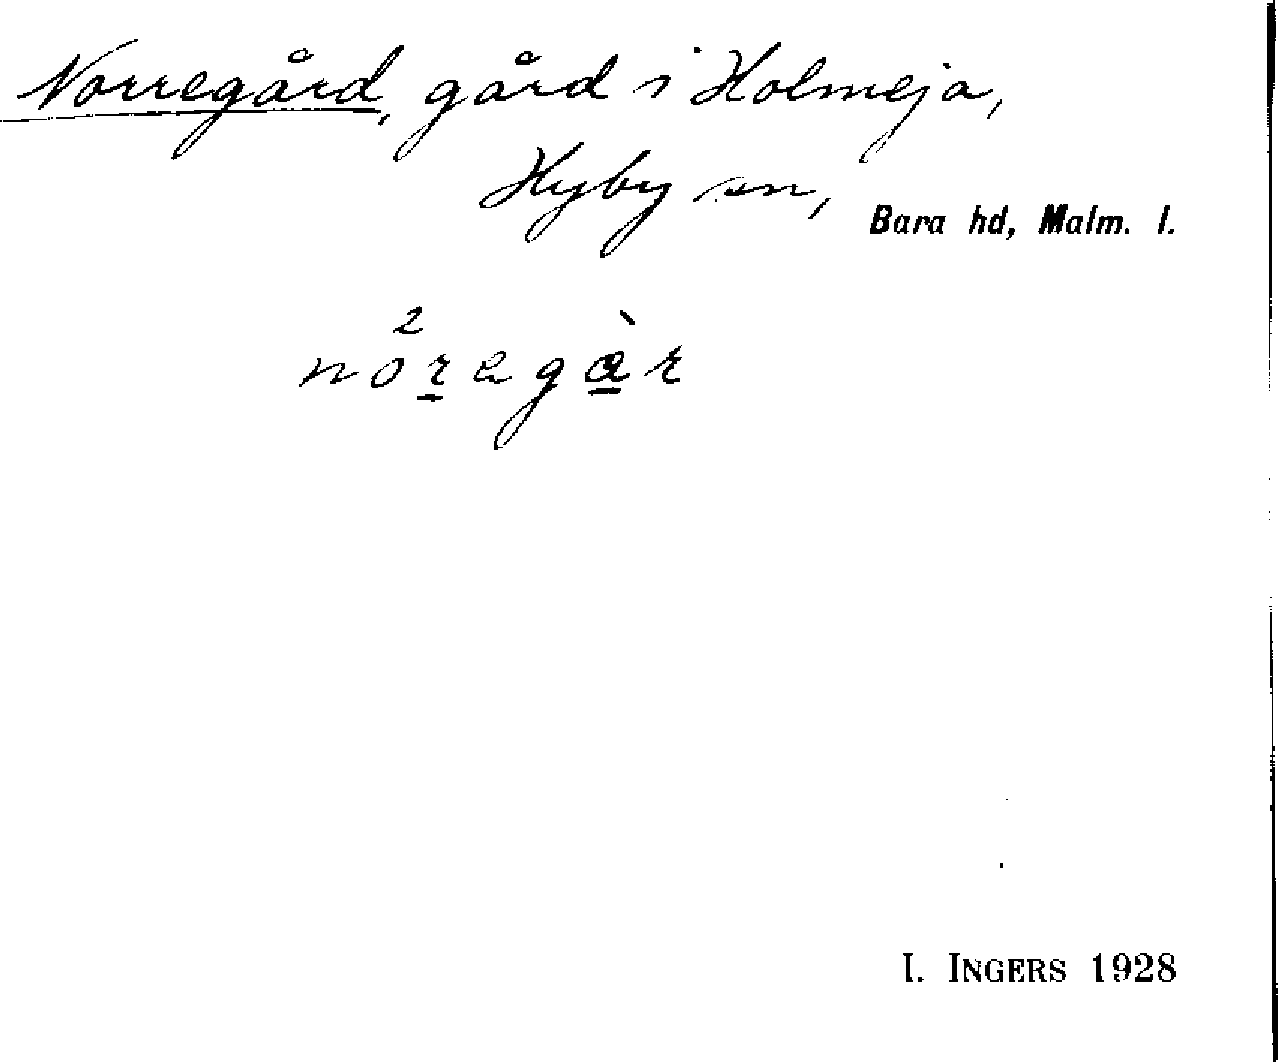 Norregård, gård i Holmeja,
Hyby sn, Bara hd, Malm. l.
I. INGERS 1928